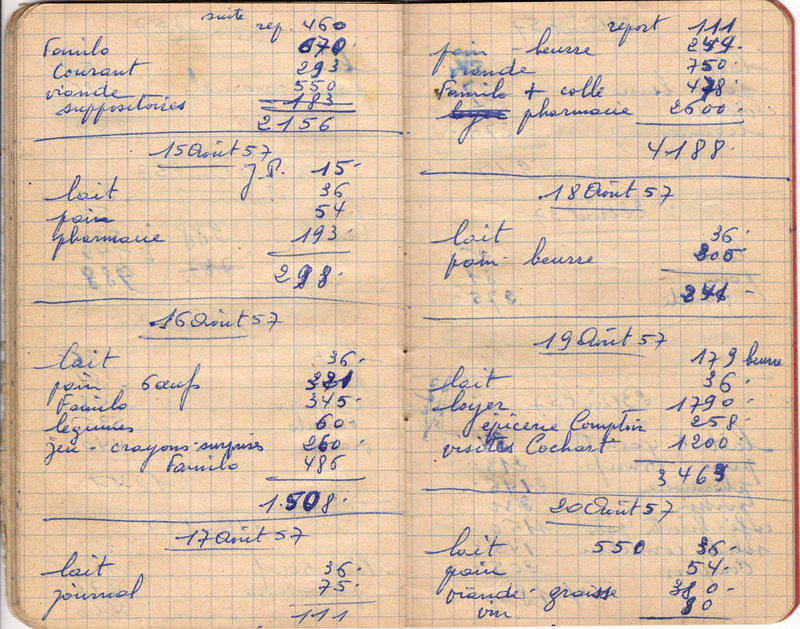 suite rep. 460
Familo 670.
Courant 293
viande 550
suppositoires 183
2156
15 Août 57
J.P. 15.
lait 36
pain 54
pharmacie 193.
298.
16 Août 57
lait 36.
pain 6 œufs 321
Familo 345.
légumes 60
jeu - crayons - surprise 260
Familo 486
1.508.
17 Août 57
lait 36.
journal 75.
111
report 111
pain - beurre 249.
viande 750
Familo + colle 478
pharmacie 2600.
4188.
18 Août 57
lait 36.
pain - beurre 305
341
19 Août 57
179 beurre
lait 36.
loyer 1790.
épicerie Comptoir 258.
visites Cochart 1200
3463
20 Août 57
lait 550 36.
pain 54.
viande graisse 380.
vin 80